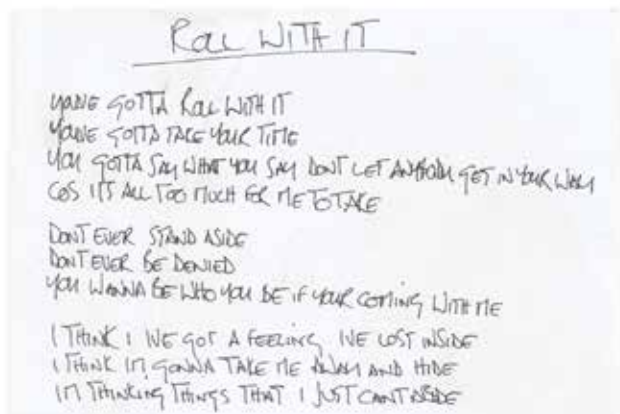 ROLL WITH IT
YOUVE GOTTA ROLL WITH IT
YOUVE GOTTA TAKE YOUR TIME
YOU GOTTA SAY WHAT YOU SAY DONT LET ANYBODY GET IN YOUR WAY
COS ITS ALL TOO MUCH FOR ME TO TAKE
DONT EVER STAND ASIDE
DONT EVER BE DENIED
YOU WANNA BE WHO YOU BE IF YOUR COMING WITH ME
I THINK I IVE GOT A FEELING IVE LOST INSIDE
I THINK IM GONNA TAKE ME AWAY AND HIDE
IM THINKING THINGS THAT I JUST CANT ABIDE